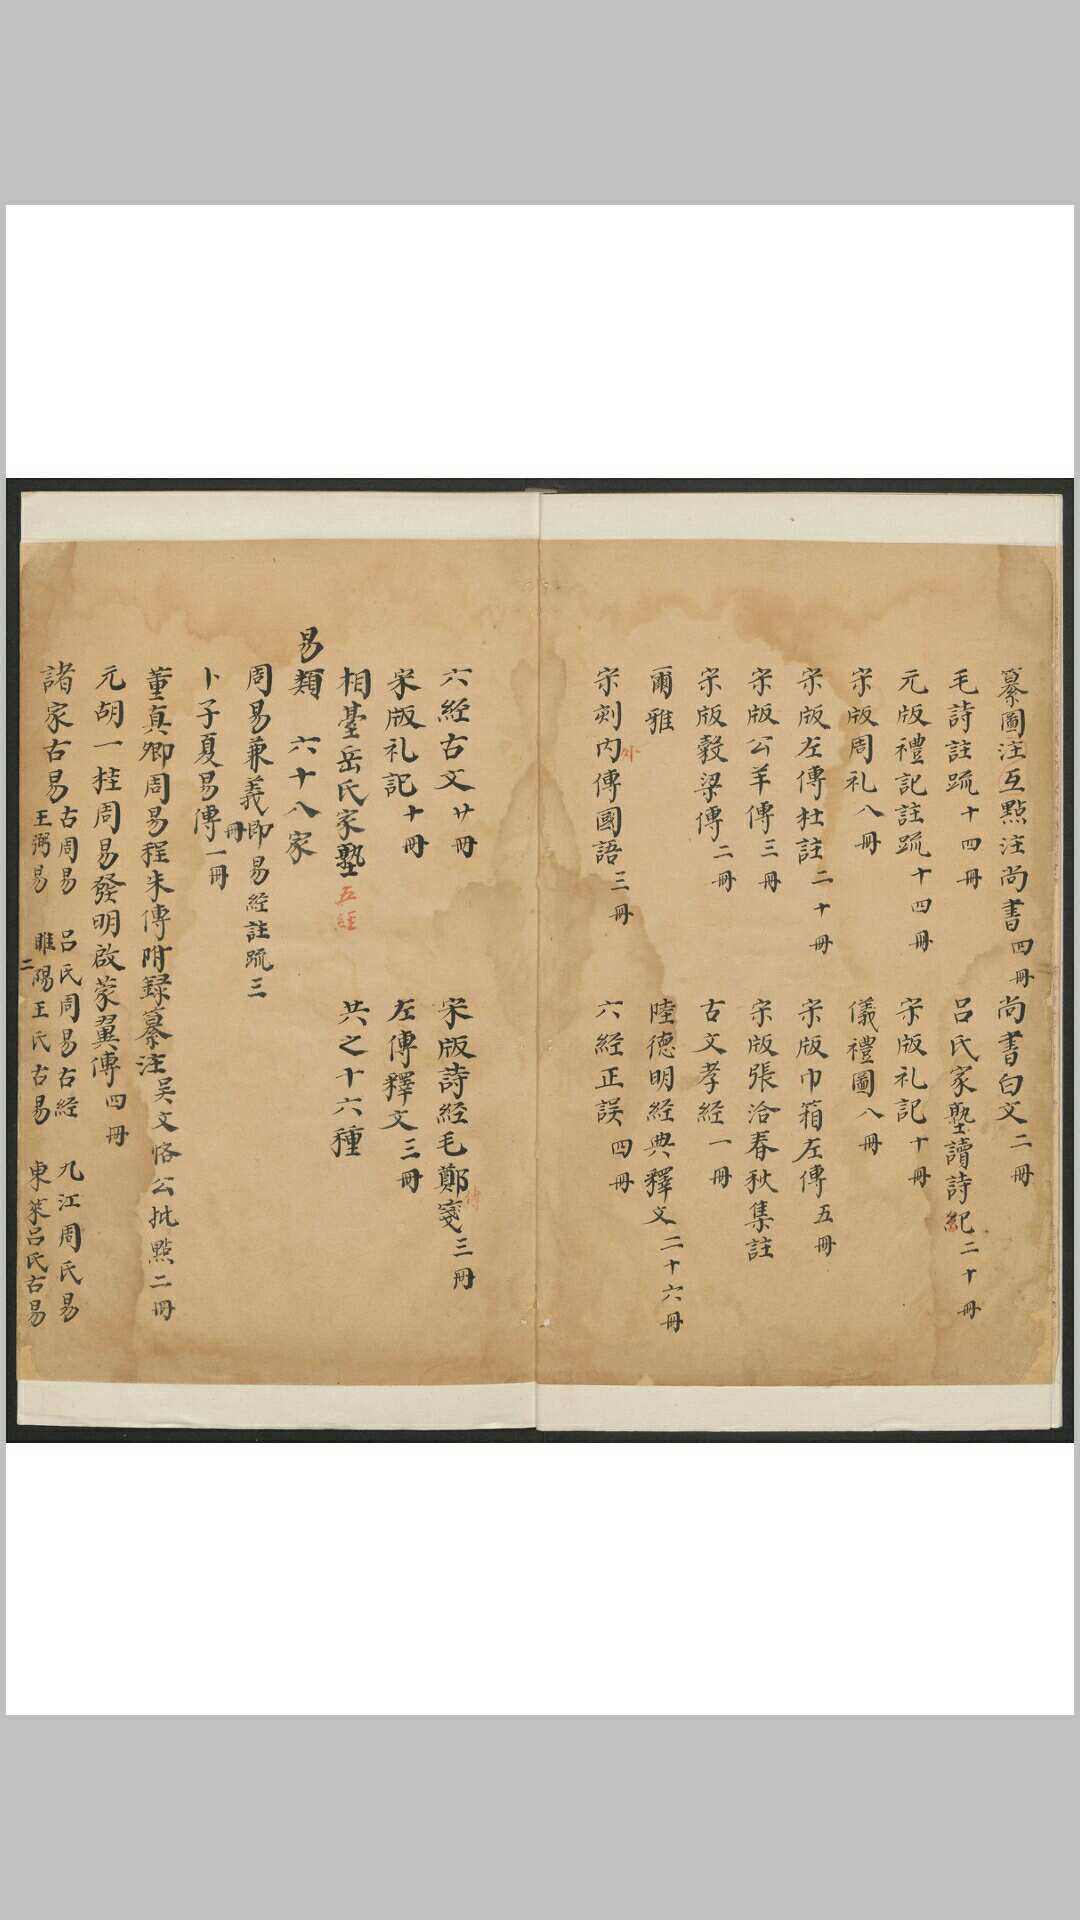 纂圖注互點注尚書四冊 尚書白文二冊
毛詩註䟽十四冊 呂氏家塾讀詩紀二十冊
元版禮記註䟽十四冊 宋版礼記十冊
宋版周礼八冊 儀禮圖八冊
宋版左傳杜註二十冊 宋版巾箱左傳五冊
宋版公羊傳三冊 宋版張洽春秋集註
宋版穀梁傳二冊 古文孝經一冊
爾雅 陸德明經典釋文二十六冊
宋刻内外傳國語三冊 六經正誤四冊
六經古文廿冊 宋版詩經毛鄭箋三冊
傳
宋版礼記十冊 左傳釋文三冊
相臺岳氏家塾五經 共之十六種
易類 六十八家
周易兼義即易經註䟽三冊
卜子夏易傳一冊
董真卿周易程朱傳附録纂注吴文恪公批點二冊
元胡一桂周易發明啟蒙翼傳四冊
諸家古易 古周易 呂氏周易古經 九江周氏易
王弼易 睢陽王氏古易 東萊呂氏古易
二